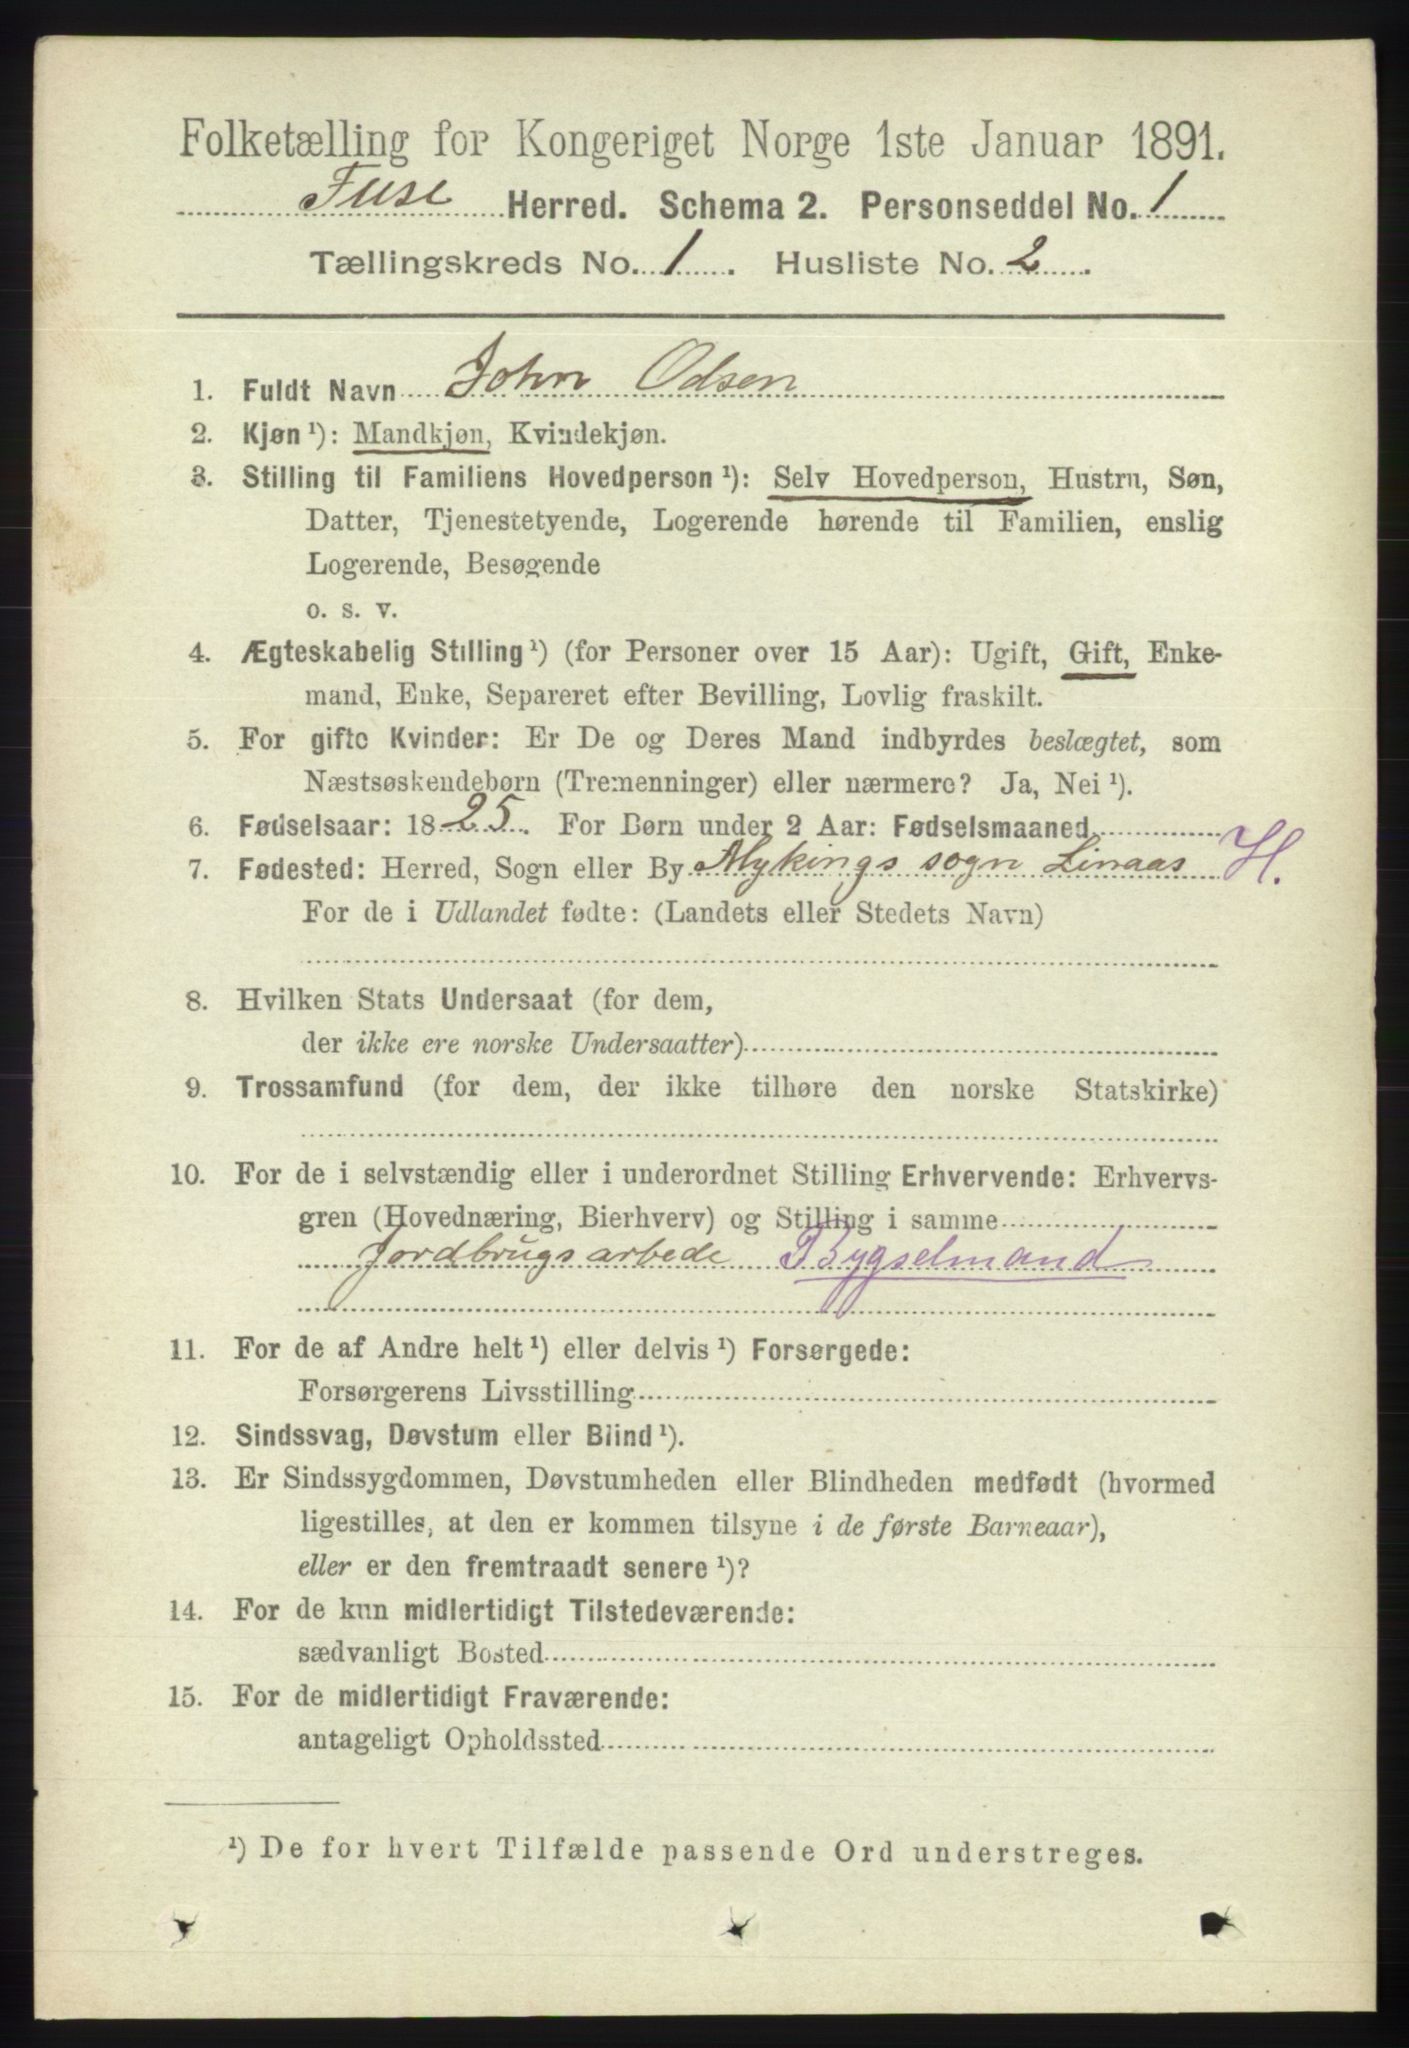 Folketælling for Kongeriget Norge 1ste Januar 1891.
Fuse Herred. Schema 2. Personseddel No. 1
Tællingskreds No. 1. Husliste No. 2.
1. Fuldt Navn John Odsen
2. Kjøn ¹): Mandkjøn, Kvindekjøn.
3. Stilling til Familiens Hovedperson ¹): Selv Hovedperson, Hustru, Søn,
Datter, Tjenestetyende, Logerende hørende til Familien, enslig
Logerende, Besøgende
o. s. v.
4. Ægteskabelig Stilling ¹) (for Personer over 15 Aar): Ugift, Gift, Enke-
mand, Enke, Separeret efter Bevilling, Lovlig fraskilt.
5. For gifte Kvinder: Er De og Deres Mand indbyrdes beslægtet, som
Næstsøskendebørn (Tremenninger) eller nærmere? Ja, Nei ¹).
6. Fødselsaar: 1825. For Børn under 2 Aar: Fødselsmaaned
7. Fødested: Herred, Sogn eller By Mykings sogn Linaas H.
For de i Udlandet fødte: (Landets eller Stedets Navn)
8. Hvilken Stats Undersaat (for dem,
der ikke ere norske Undersaatter)
9. Trossamfund (for dem, der ikke tilhøre den norske Statskirke)
10. For de i selvstændig eller i underordnet Stilling Erhvervende: Erhvervs-
gren (Hovednæring, Bierhverv) og Stilling i samme
Jordbrugsarbede Bygselmand
11. For de af Andre helt ¹) eller delvis ¹) Forsørgede:
Forsørgerens Livsstilling
12. Sindssvag, Døvstum eller Blind ¹).
13. Er Sindssygdommen, Døvstumheden eller Blindheden medfødt (hvormed
ligestilles, at den er kommen tilsyne i de første Barneaar),
eller er den fremtraadt senere ¹)?
14. For de kun midlertidigt Tilstedeværende:
sædvanligt Bosted
15. For de midlertidigt Fraværende:
antageligt Opholdssted
¹) De for hvert Tilfælde passende Ord understreges.